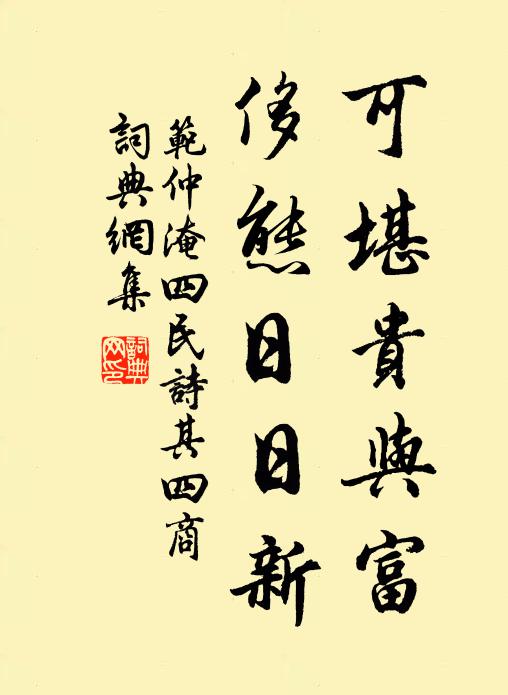 可堪貴與富
侈態日日新
範仲淹四民詩其四商
詞典網集
詞典
网印